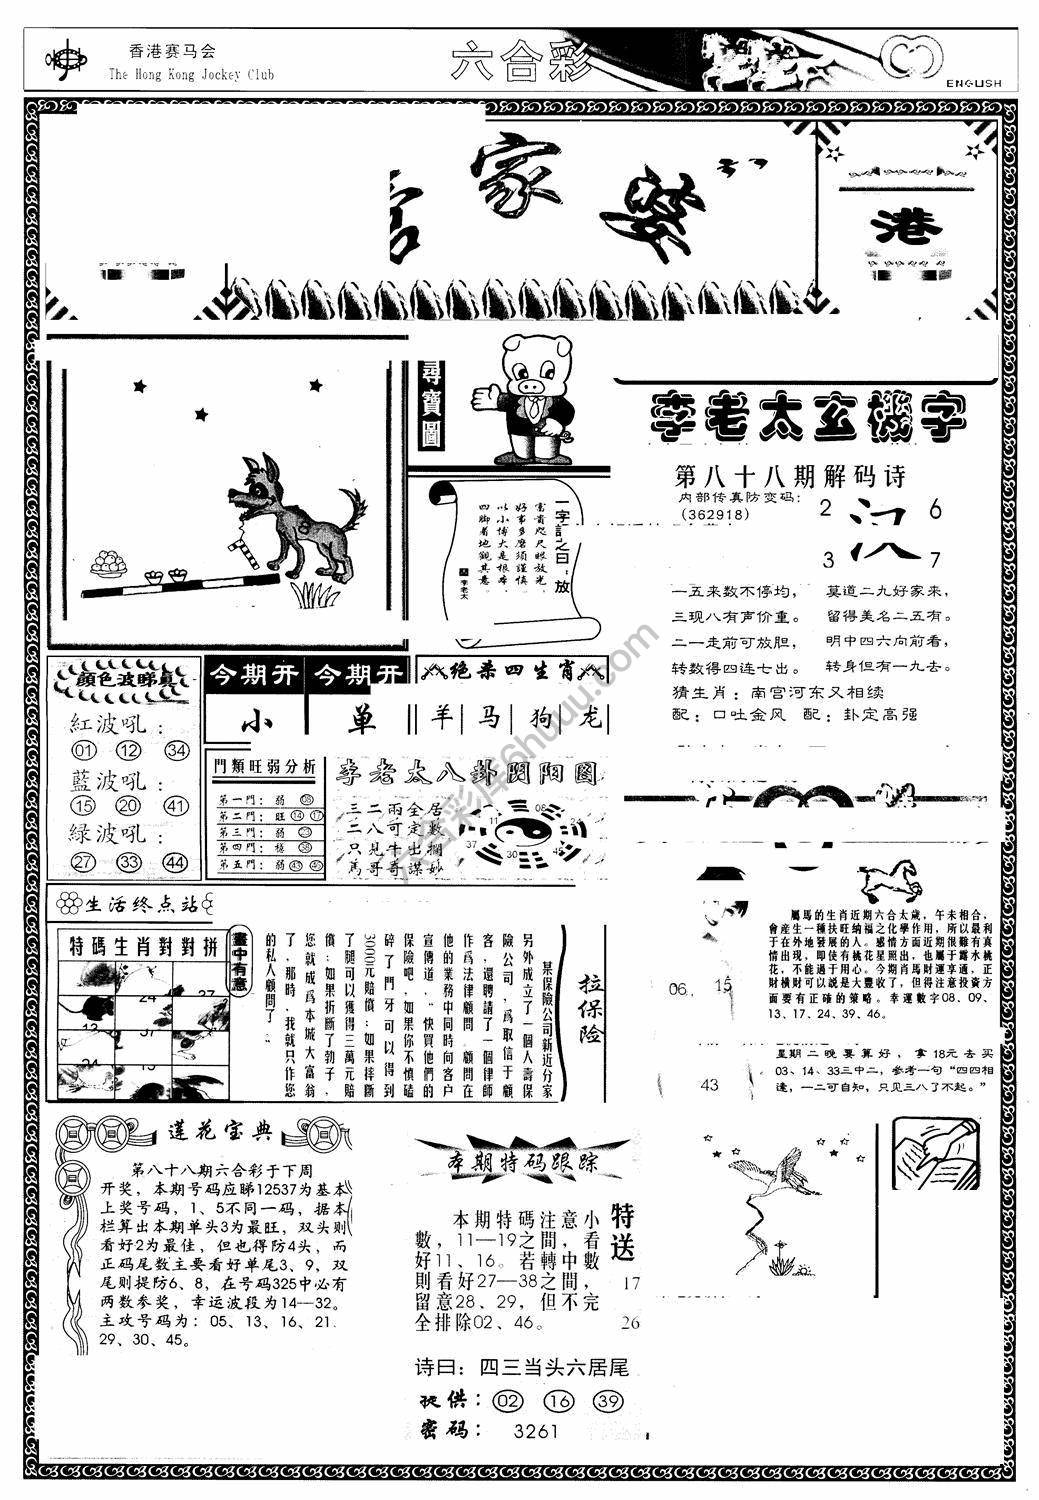 香港赛马会
The Hong Kong Jockey Club
六合彩
ENGLISH
家婆
港
尋寶圖
一字記之曰：放
富貴咫尺眼放光，
好事多磨須謹慎，
以小博大是根本，
四腳者地觀其意。
李老太
李老太玄機字
第八十八期解码诗
内部传真防变码：
(362918)
2
6
3
7
一五来数不停均，
莫道二九好家来，
三现八有声价重。
留得美名二五有。
二一走前可放胆，
明中四六向前看，
转数得四连七出。
转身但有一九去。
猜生肖：南宫河东又相续
配：口吐金风 配：卦定高强
顏色波睇真
紅波吼：
01 12 34
藍波吼：
15 20 41
绿波吼：
27 33 44
今期开
小
今期开
单
绝杀四生肖
羊 马 狗 龙
門類旺弱分析
第一門：弱 08
第二門：旺 14 17
第三門：弱 23
第四門：穩 38
第五門：弱 43 45
李老太八卦阴阳图
三二兩全居
二八可定數
只見牛出欄
馬哥奇謀妙
08
11
24
37
30
45
生活终点站
特碼生肖對對拼
畫中有意
拉保險
某保險公司新近分家
另外成立了一個人壽保
險公司，爲取信于顧
客，還聘請了一個律師
作爲法律顧問。顧問在
他的業務中同時向客户
宣傳道，“快買他們的
保險吧，如果你不慎磕
碎了門牙可以得到
3000元賠償；如果摔斷
了腿可以獲得三萬元賠
償；如果折斷了勃子，
您就成爲本城大富翁
了，那時，我就只作您
的私人顧問了。
06、
15
43
屬馬的生肖近期六合太歲，午未相合，
會産生一種扶旺纳福之化學作用，所以最利
于在外地發展的人。感情方面近期很難有真
情出现，即使有桃花星照出，也屬于露水桃
花，不能過于用心。今期肖馬財運享通，正
財橫財可以説是大豐收了，但得注意投資方
面要有正確的策略。幸運數字08、09、
13、17、24、39、46。
星期二晚要算好，拿18元去买
03、14、33三中二，参考一句“四四相
逢，一二可自知，只见三八了不起。”
莲花宝典
第八十八期六合彩于下周
开奖，本期号码应睇12537为基本
上奖号码，1、5不同一码，据本
栏算出本期单头3为最旺，双头则
看好2为最佳，但也得防4头，而
正码尾数主要看好单尾3、9，双
尾则提防6、8，在号码325中必有
两数参奖，幸运波段为14—32。
主攻号码为：05、13、16、21、
29、30、45。
本期特码跟踪
本期特碼注意小
數，11—19之間，看
好11、16。若轉中數
則看好27—38之間，
留意28、29，但不完
全排除02、46。
特送
17
26
诗曰：四三当头六居尾
提供：02 16 39
密码：3261